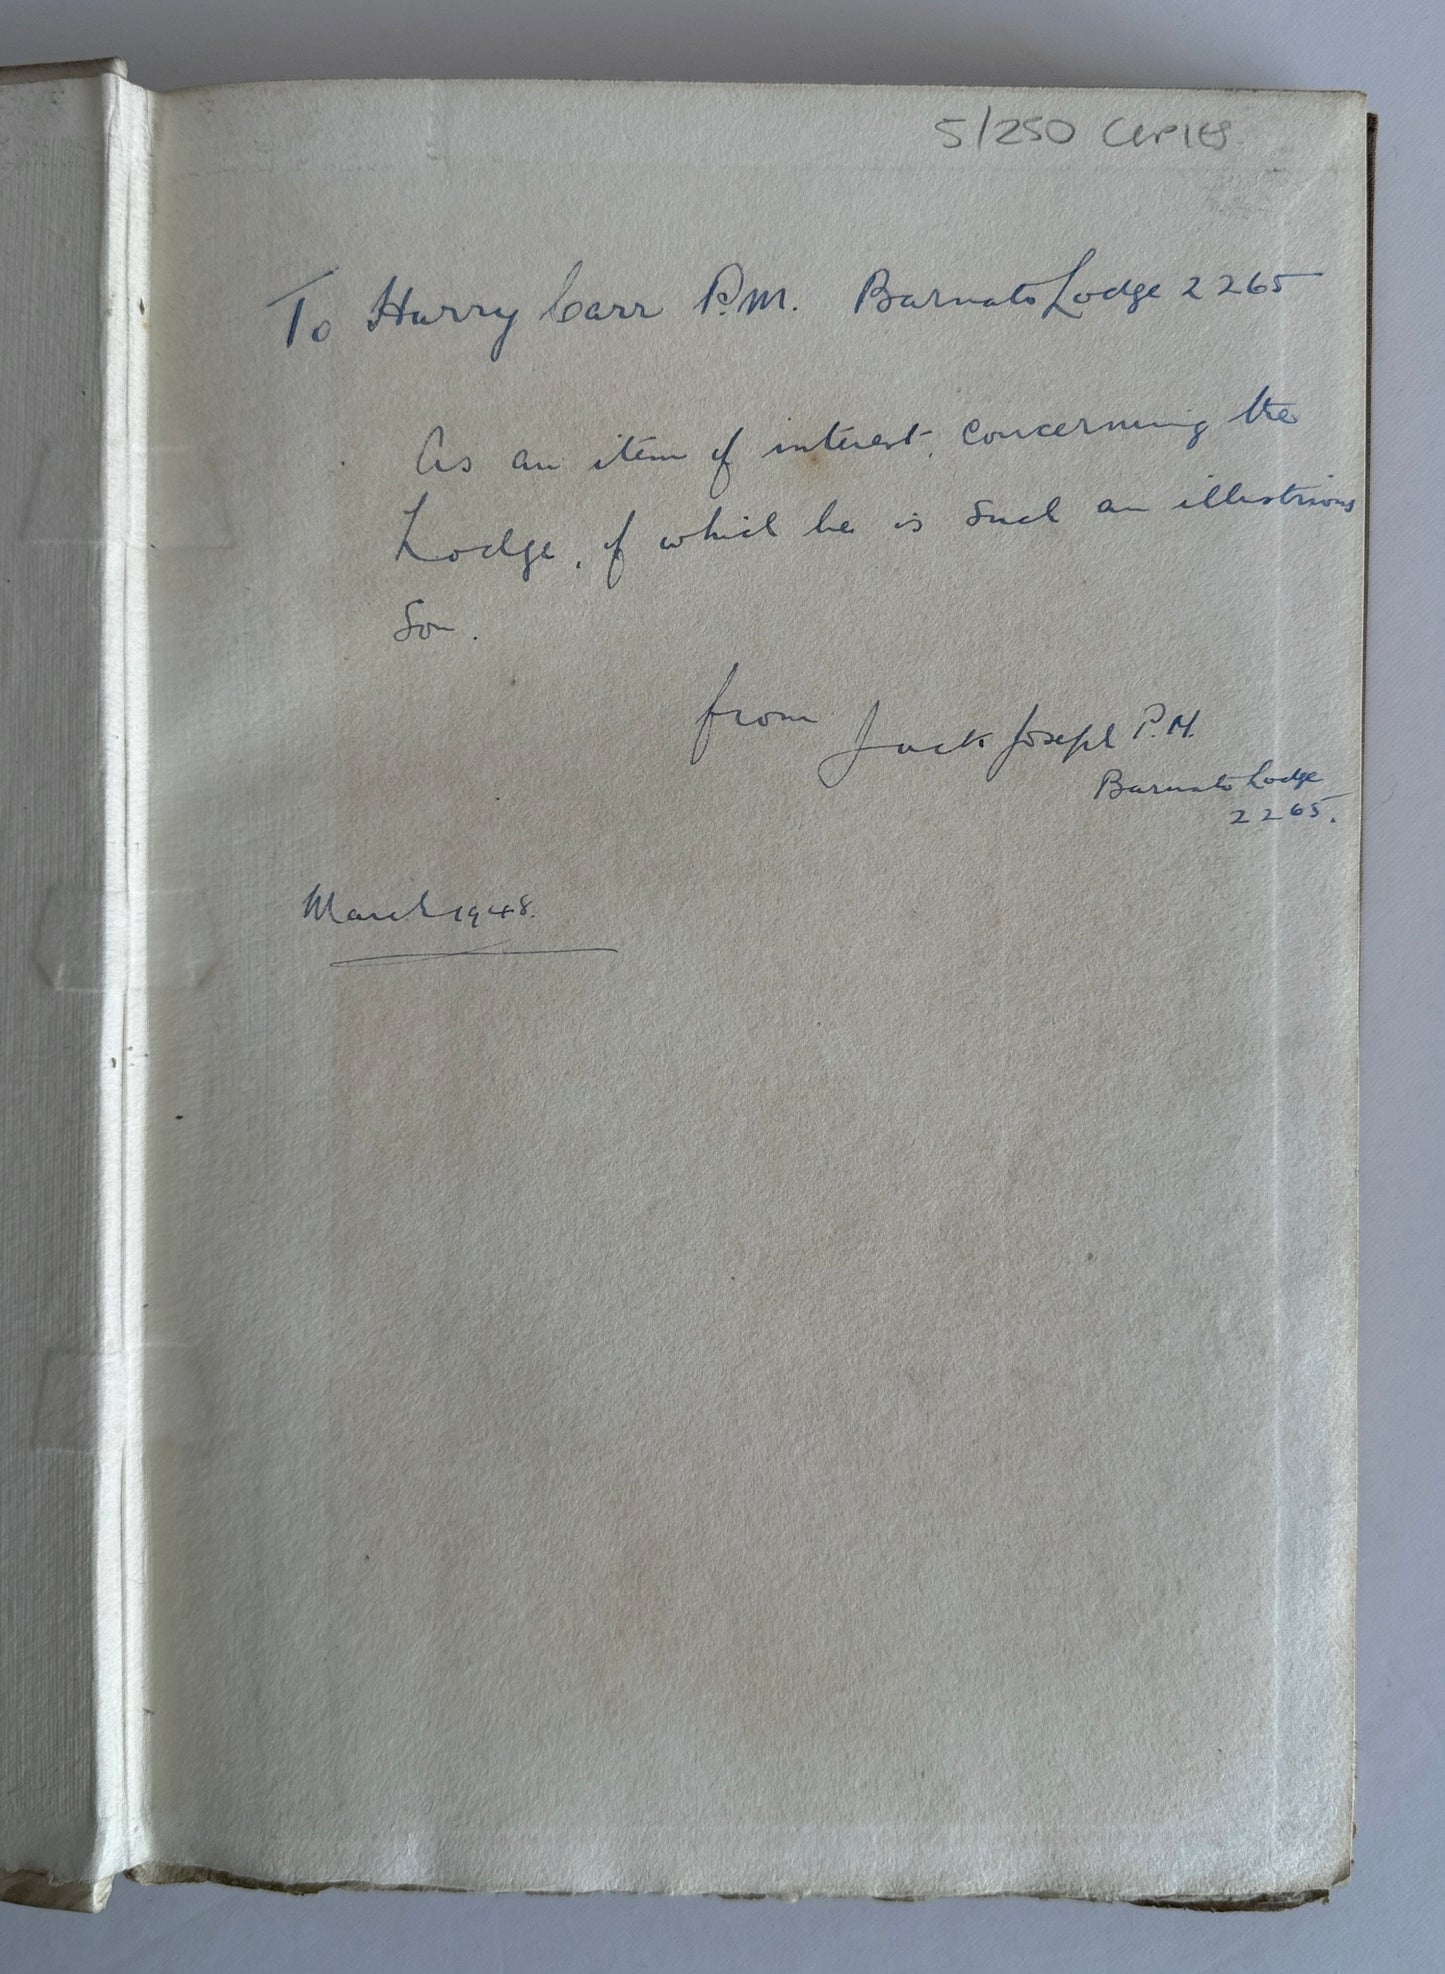 5/250 COPIES
To Harry Carr P.M. Barnato Lodge 2265
As an item of interest, concerning the
Lodge, of which he is such an illustrious
son.
from Jack Joseph P.M.
Barnato Lodge
2265.
March 1948.